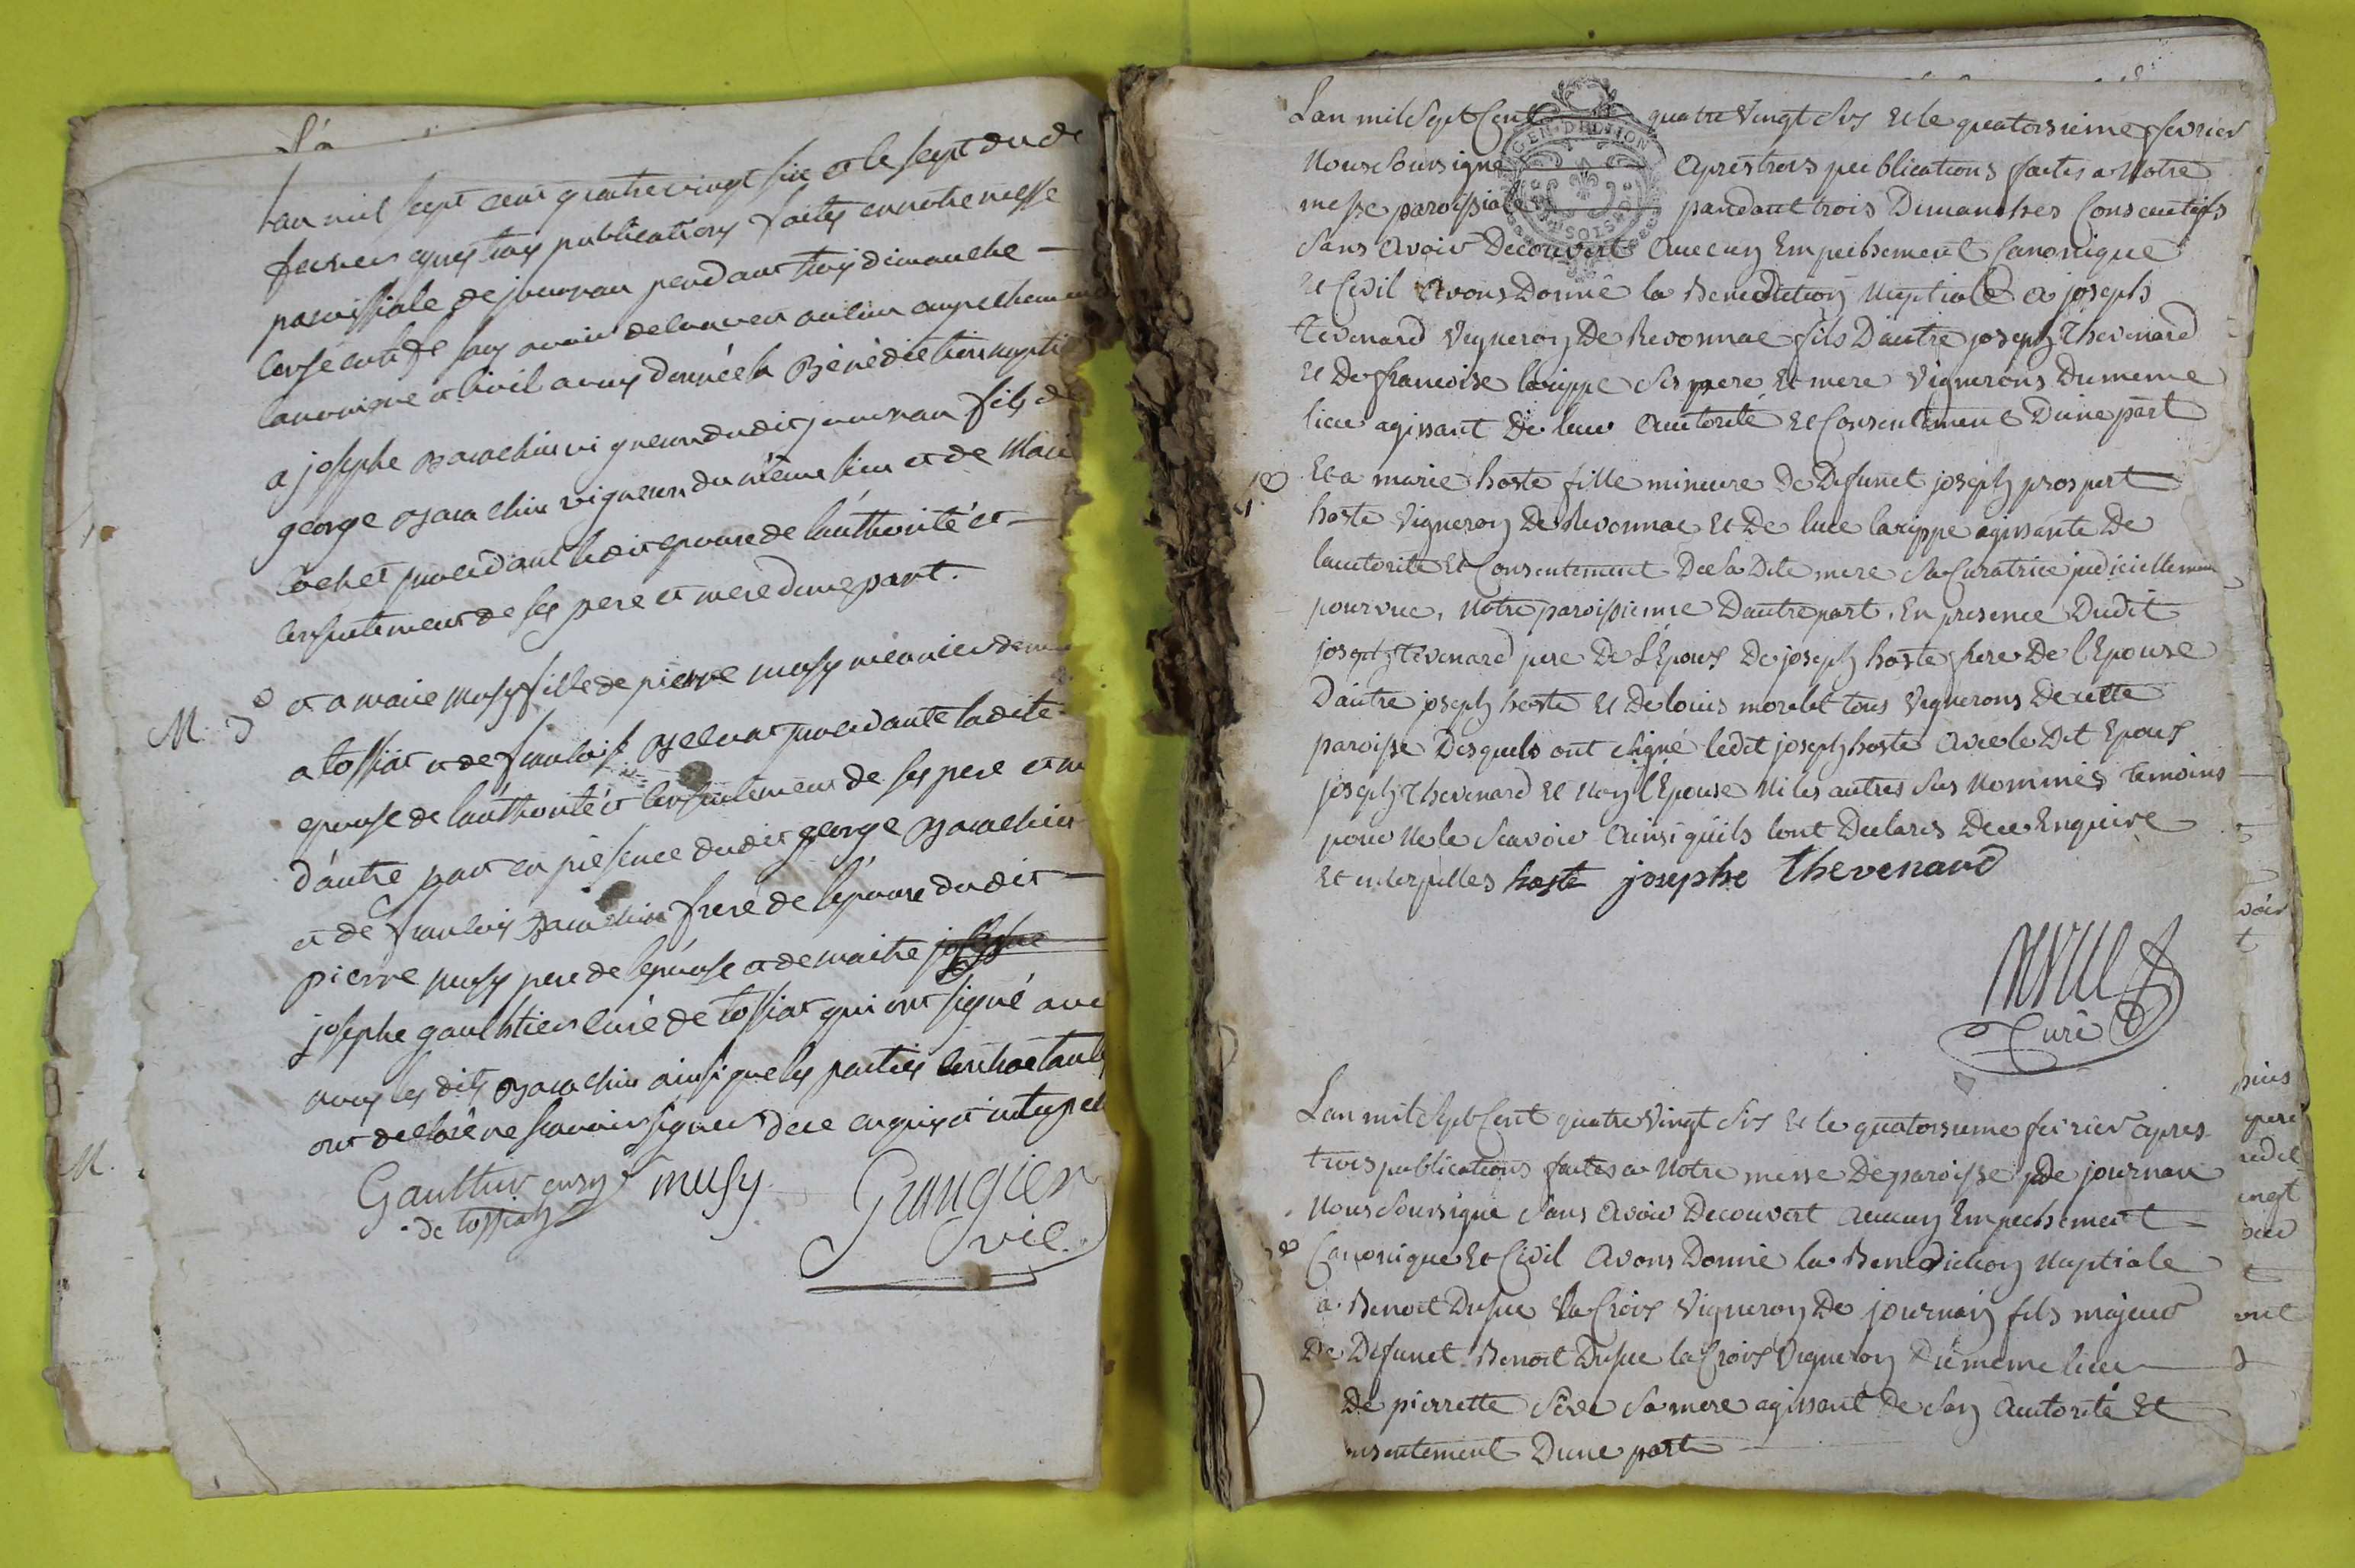 L'a
Lan mil sept cent quatre vingt six et le sept du de
fevrier apres trois publications faites en notre messe
paroissiale de journan pendant trois dimanche
consecutifs sans avoir decouvert aucun empechement
canonique et civil avons donnée la Bénédiction nupti
a josephe Barachin vigneron dudit journan fils de
george Barachin vigneron du même lieu et de Marie
Cochet procedant ledit epoux de l'authorité et
consentement de ses pere et mere dune part.
M. 3e
et a marie musy fille de pierre musy meunier dem
a tossiat et de francoise procedante ladite
epouse de l'authorité et consentement de ses pere et m
d'autre part en présence dudit george Barachin
et de francois Barachin frere de l'epoux dudit
pierre musy pere de l'epouse et de maitre josephe
josephe gaulthier curé de tossiat qui ont signé avec
nous les dits Barachin ainsi que les parties contractantes
ont déclaré ne scavoir signer de ce enquis et interpel
Gaulthier curé musy Grangier
de tossiat vic.
M.
Lan mil Sept Cent quatre Vingt Six Et le quatorsieme fevrier
Nous Soussigné Apres trois publications faites a Notre
messe paroissiale pandant trois Dimanches Consecutifs
Sans Avoir Decouvert Aucun Empechement Canonique
Et Civil Avons Donné la Benediction Nuptiale a joseph
Tevenard Vigneron De Revonnac fils Dautre joseph Thevenard
Et De francoise larippe Ses pere Et mere Vignerons Dumeme
lieu agissant De leur Autorité Et Consentement Dune part
Et a marie hoste fille mineure De Defunct joseph prospert
hoste Vigneron De Revonnac Et De luce larippe agissante De
lautorité Et Consentement De Sa Dite mere Sa Curatrice judiciellement
pourvue, Notre paroissienne Dautre part. En presence Dudit
joseph Tevenard pere De L'Epoux De joseph hoste frere De l'Epouse
Dautre joseph hoste Et De louis morelet tous Vignerons De cette
paroisse Desquels ont Signé ledit joseph hoste Avec le Dit Epoux
joseph Thevenard Et Non l'Epouse Ni les autres Sus Nommés temoins
pour Ne le Scavoir Ainsi quils lont Declarés De ce Enquire
Et interpelles hoste josephe thevenard
Curé
Lan mil Sept Cent quatre Vingt Six Et le quatorsieme fevrier apres
trois publications faites a Notre messe De paroisse de journan
Nous Soussigné Sans Avoir Decouvert Aucun Empechement
Canonique Et Civil Avons Donné la Benediction Nuptiale
a Benoit Dufue la Croix Vigneron De journan fils majeur
De Defunct Benoit Dufue la Croix Vigneron Du meme lieu
De pierrette Séve Sa mere agissant De Son Autorité Et
nsentement Dune part